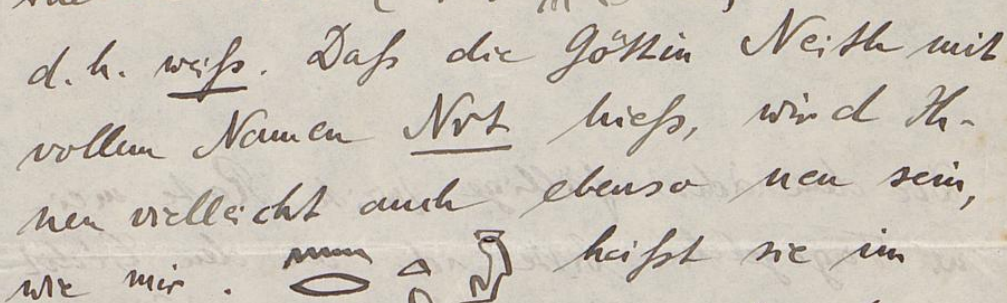 d. h. weiß. Daß die Göttin Neith mit
vollem Namen Nrt hieß, wird Ih-
nen vielleicht auch ebenso neu sein,
wie mir. 𓈖𓂋𓏏 heißt sie im